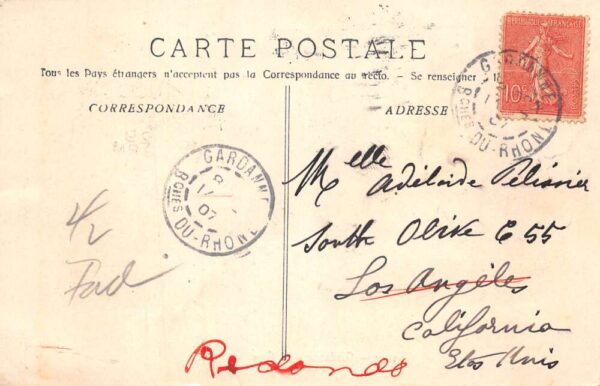 CARTE POSTALE
Tous les Pays étrangers n'acceptent pas la Correspondance au recto. — Se renseigner
CORRESPONDANCE
ADRESSE
RÉPUBLIQUE FRANÇAISE
10c
GARDANNE
BCHES-DU-RHÔNE
07
GARDANNE
8
07
BCHES-DU-RHÔNE
Melle Adélaide Pélissier
South Olive 655
Los Angéles
California
Etas Unis
Redondo